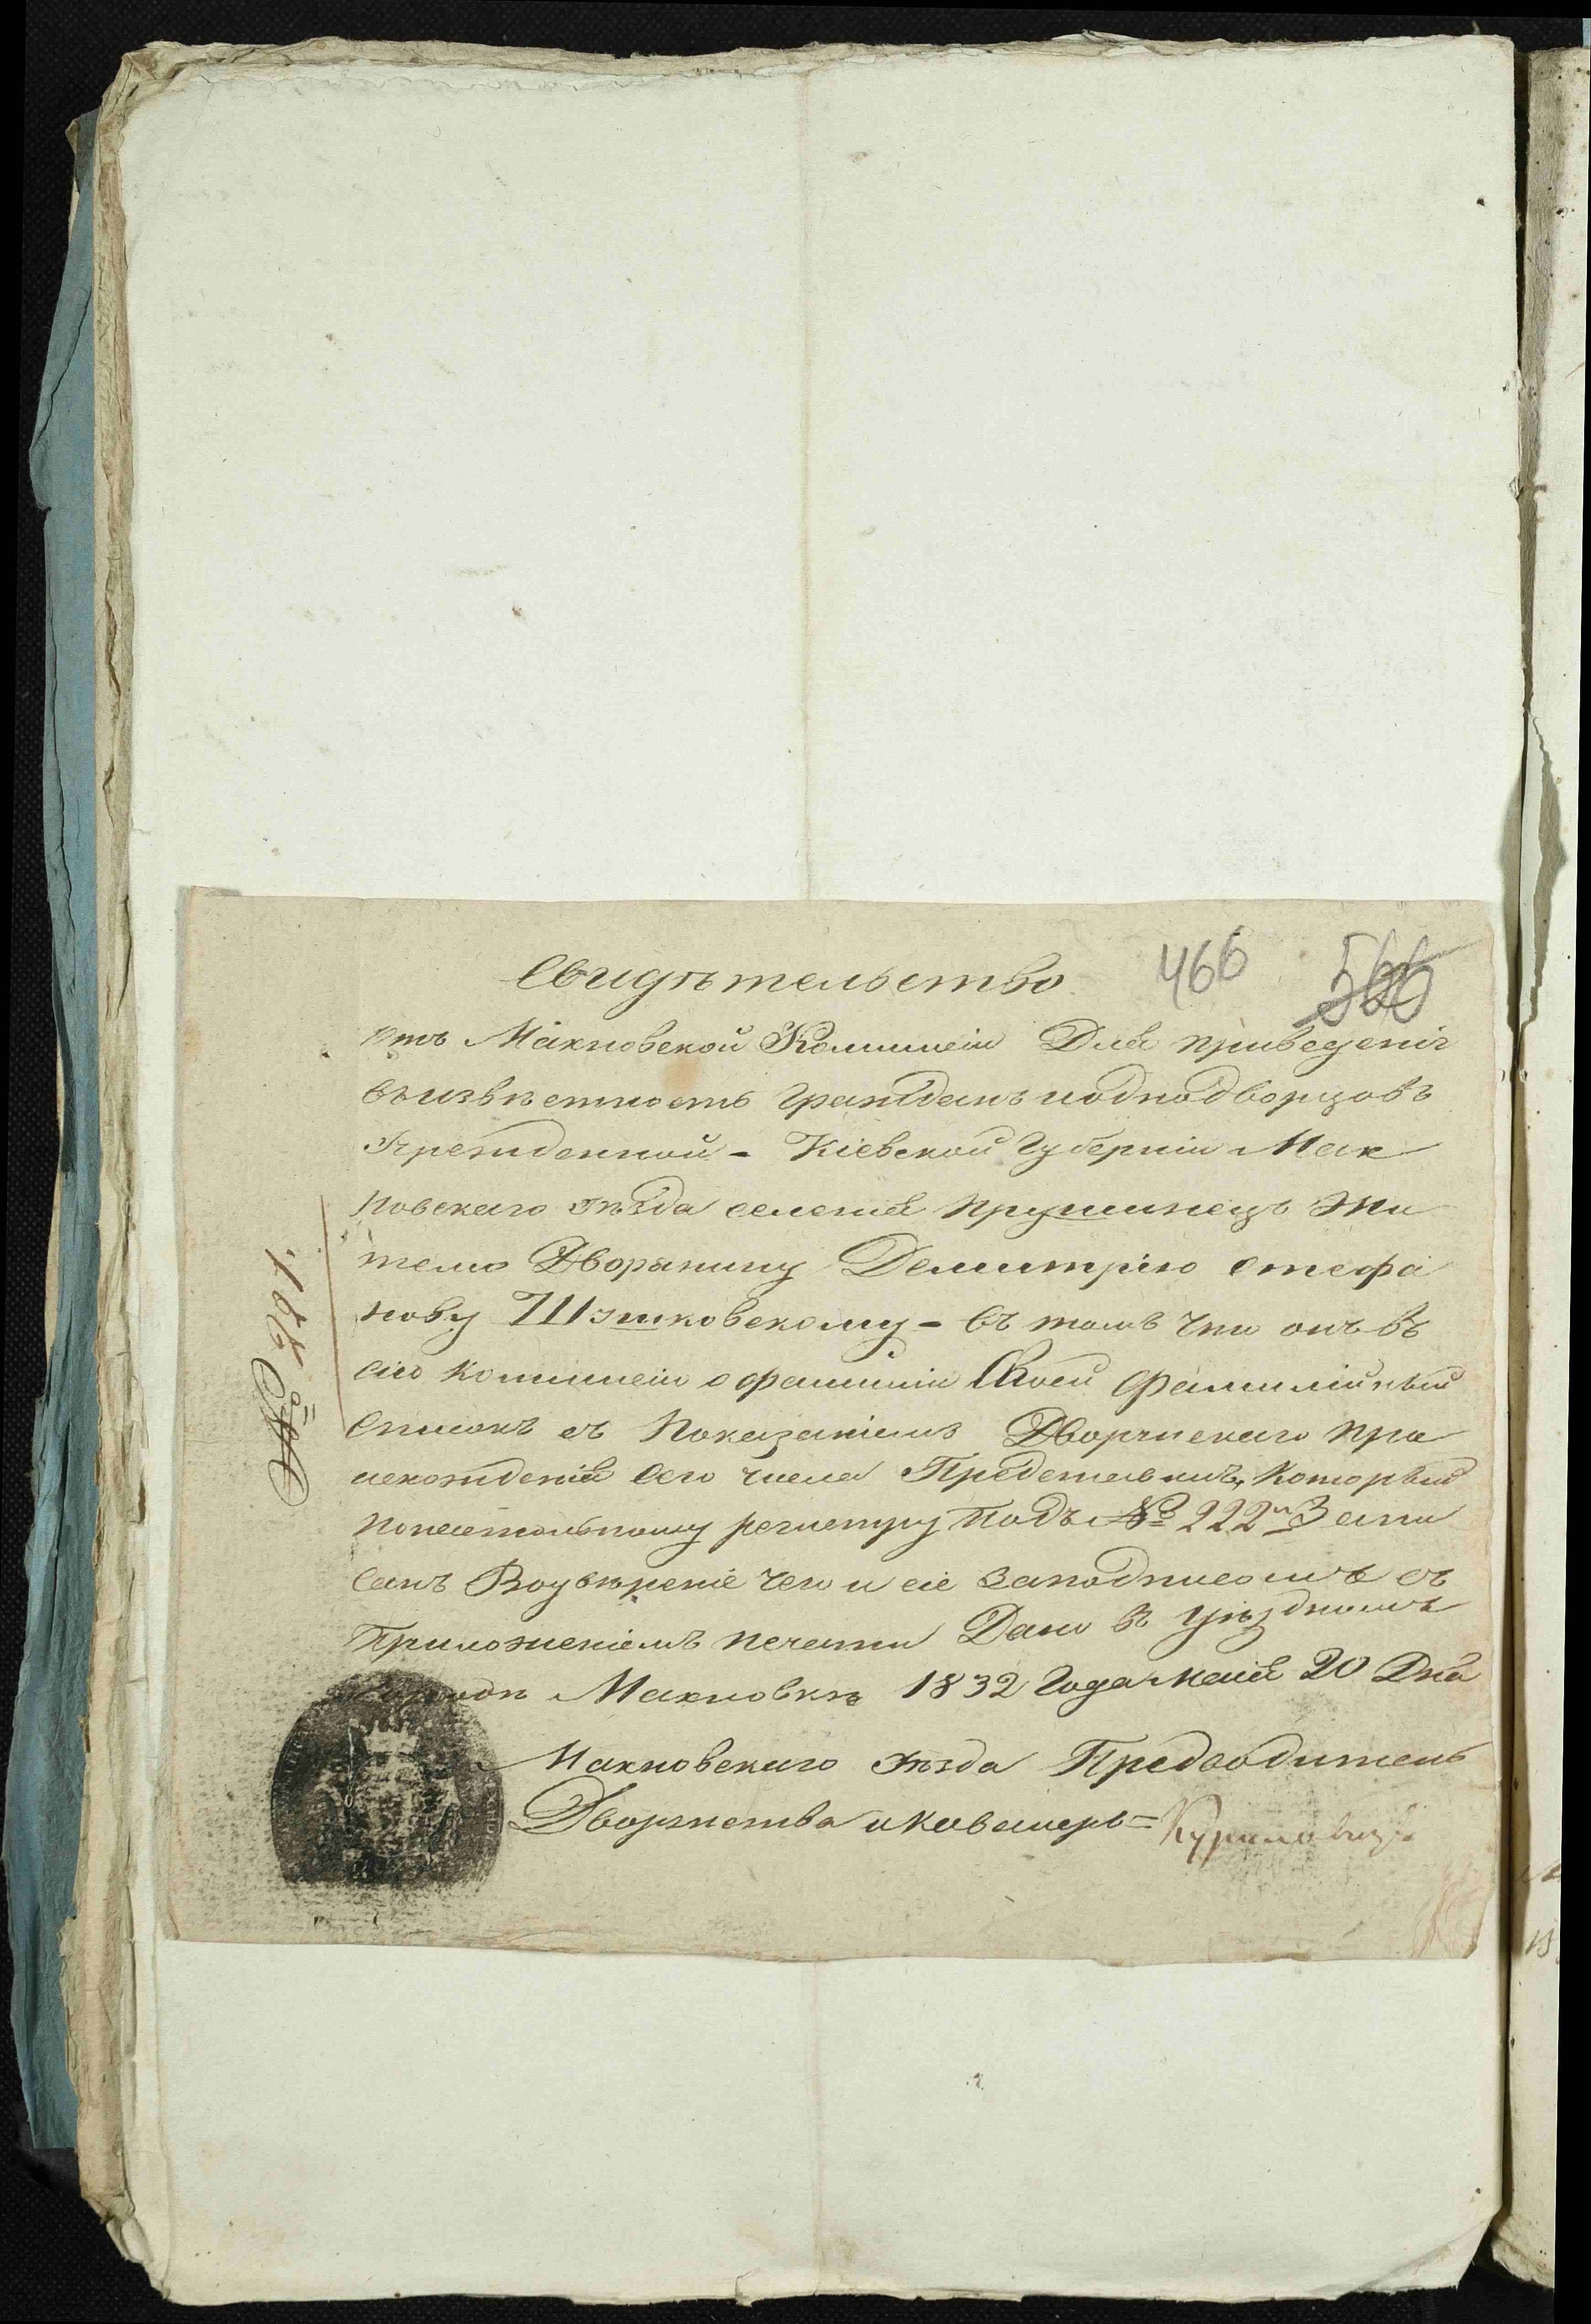 466 566
Свидѣтельство
Отъ Махновской Коммисіи Для приведенія
въ извѣстность гражданъ и однодворцовъ
Учрежденной - Кіевской Губерніи Мах
новскаго уѣзда селенія Прушинецъ Жи
телю Дворянину Демитрію Стефа
нову Шэшковскому - въ томъ что онъ въ
сію Коммисію о фамиліи Своей Фамилійный
Списокъ съ Показаніемъ Дворянскаго про
исхожденія сего числа Представилъ, Который
по настольному регистру подъ № 222 и запи
санъ Во увѣреніе чего и сіе за подписомъ съ
Приложеніемъ печати Дано въ уѣздномъ
Махновкѣ 1832 Года маія 20 Дня
Махновскаго уѣзда Предводитель
Дворянства и Кавалеръ =